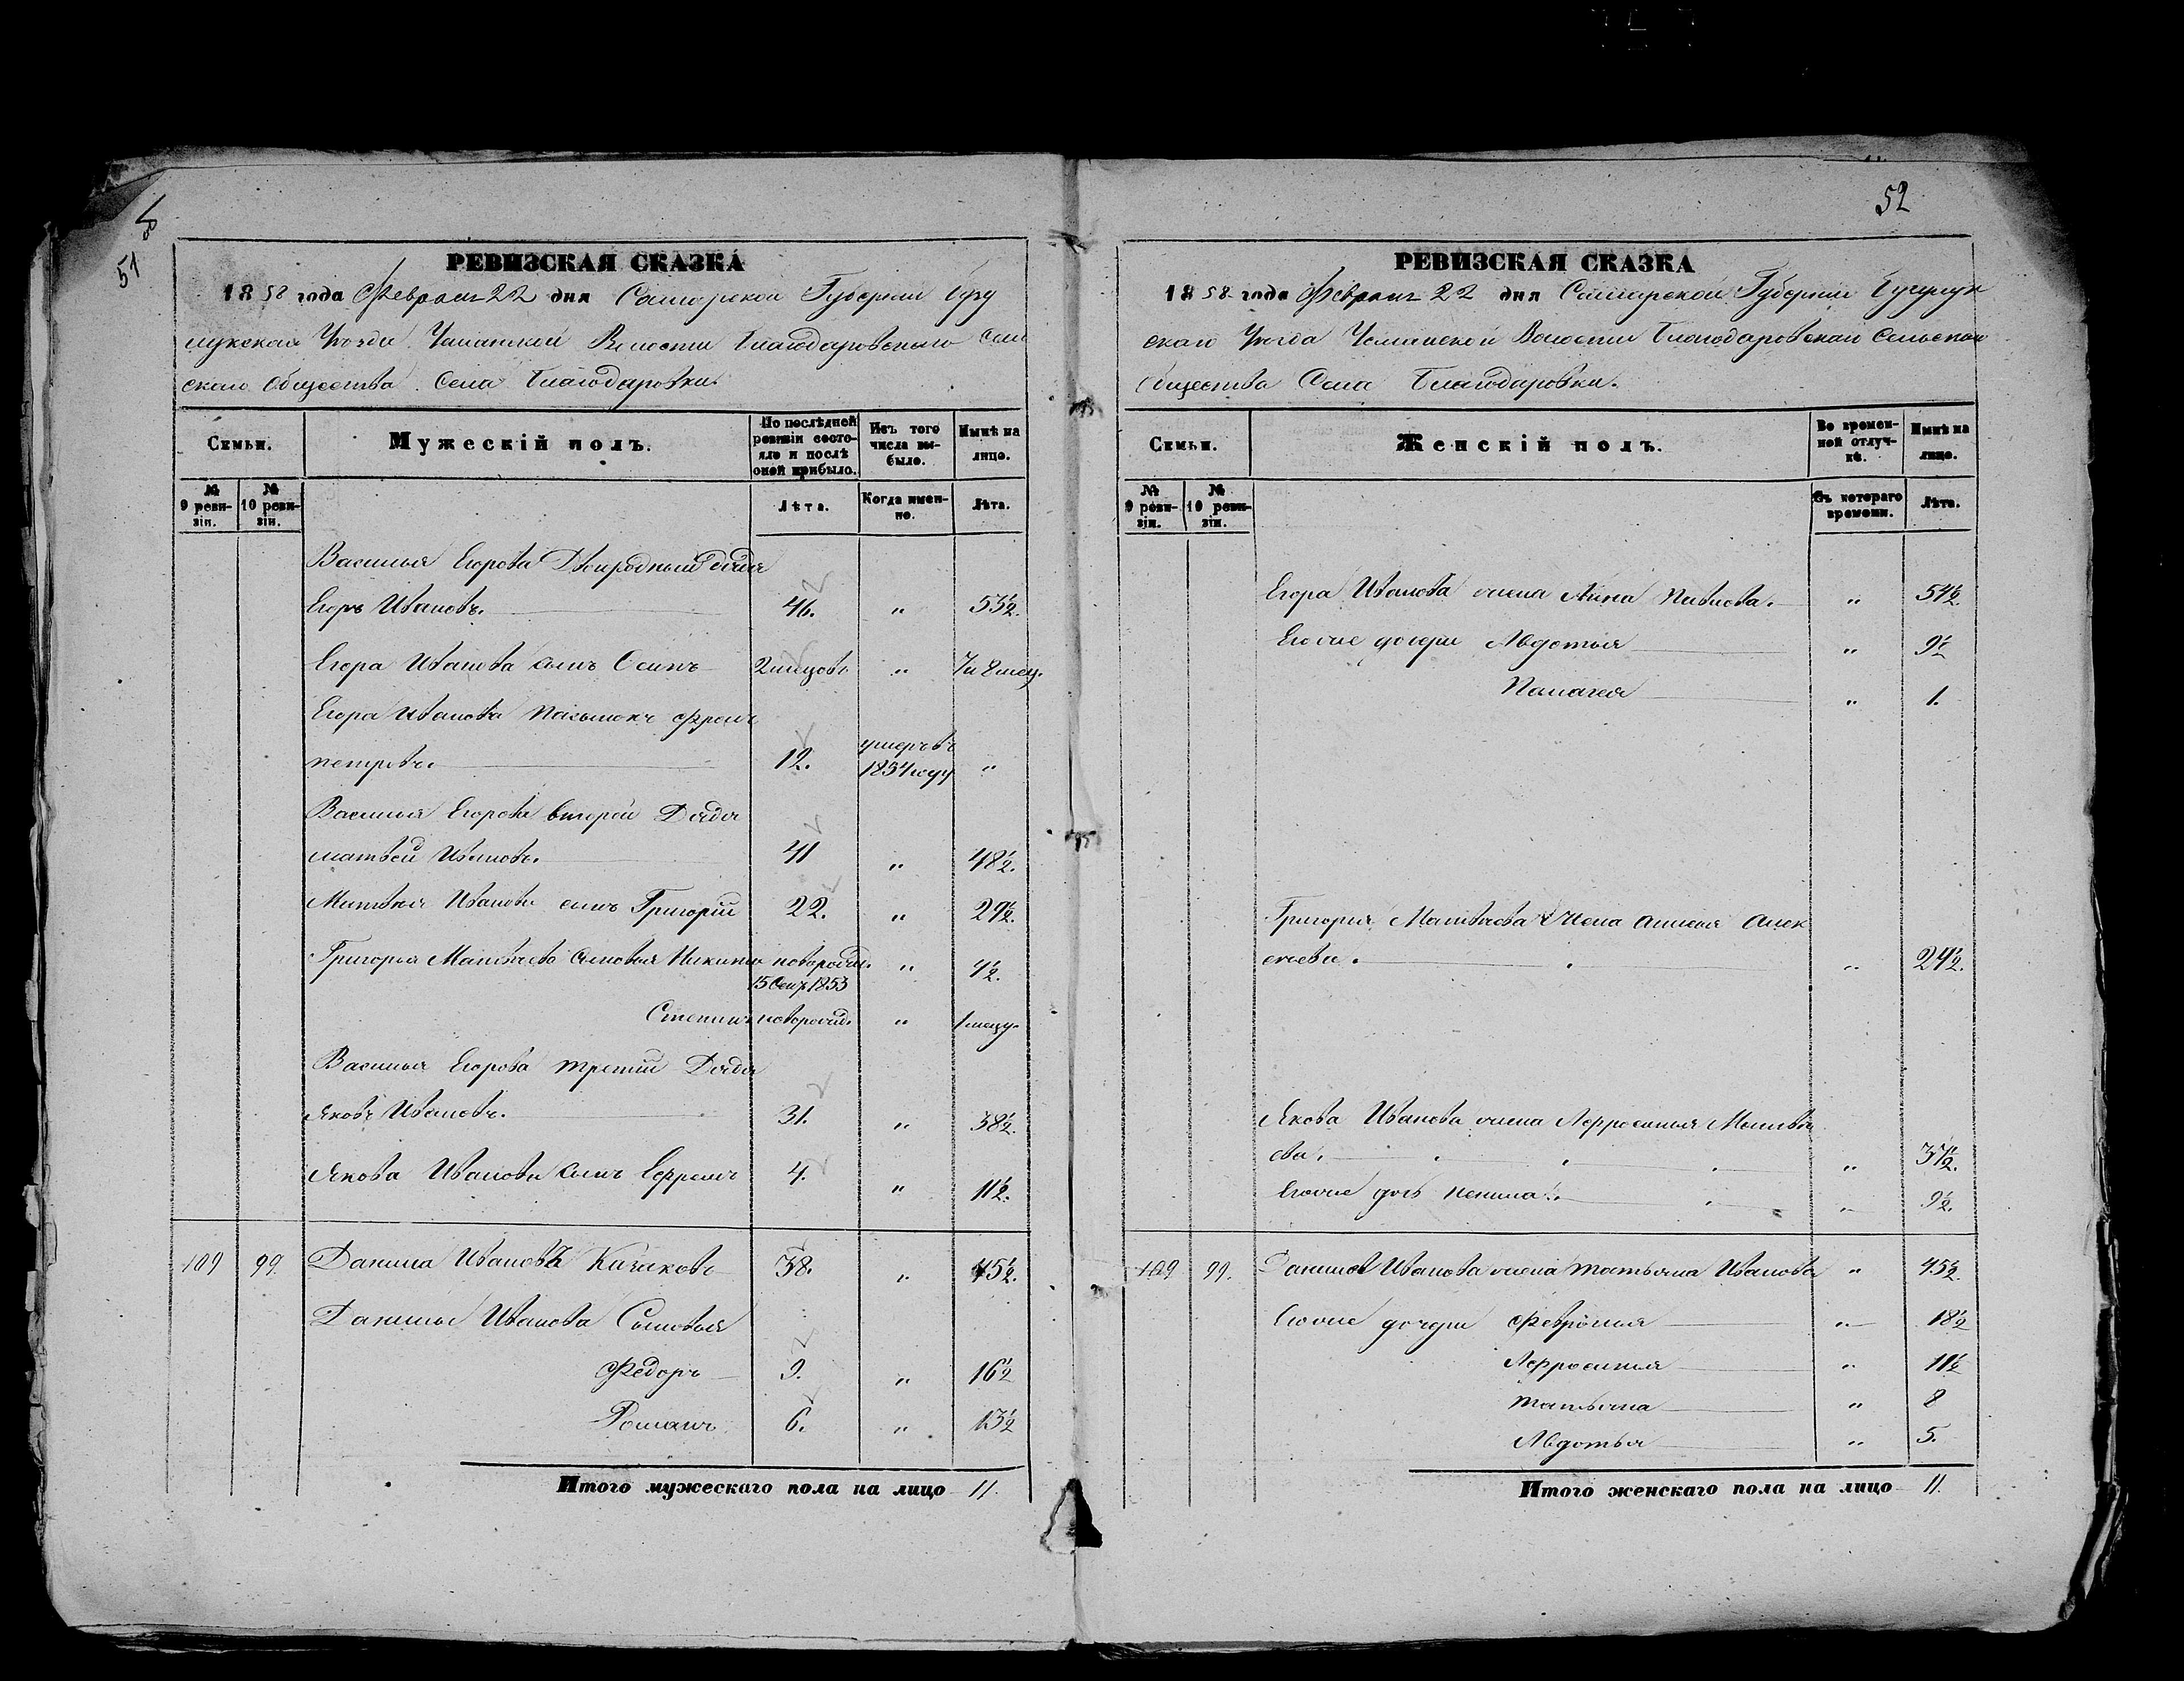 51
52
РЕВИЗСКАЯ СКАЗКА
1858 года Февраля 22 дня Самарской Губернии Бугу
лукскаго Уезда Волости Благодаровскаго Сель
скаго Общества Села Благодаровки.
Семьи.
Мужескій полъ.
По послѣдней ревизіи состояло и послѣ оной прибыло.
Изъ того числа выбыло.
Нынѣ на лицо.
№ 9 ревизіи.
№ 10 ревизіи.
Лѣта.
Когда именно.
Лѣта.
Василья Егорова Двоюродный дядя
Егоръ Ивановъ. 46. " 53½.
Егора Иванова сынъ Осипъ 2 мѣсцовъ " 7 и 8 мец.
Егора Иванова пасынокъ Фролъ
петровъ. 12. умеръ въ 1854 году "
Василья Егорова второй Дядя
матвей Ивановъ. 41 " 48½.
Матвея Иванова сынъ Григорій 22. " 29½.
Григорья Матвѣева сыновья Никита новорожд. " 4½.
15 Сент. 1853
Степанъ новорожд. " 1 мецу.
Василья Егорова третій Дядя
Яковъ Ивановъ. 31. " 38½.
Якова Иванова сынъ Ефремъ 4. " 11½.
109 99. Данила Ивановъ Казаковъ 38. " 45½.
Данилы Иванова Сыновья
Федоръ 9. " 16½
Романъ 6. " 13½
Итого мужескаго пола на лицо 11.
РЕВИЗСКАЯ СКАЗКА
1858 года Февраля 22 дня Самарской Губернии Бугулук
скаго Уезда Волости Благодаровскаго Сельскаго
Общества Села Благодаровки.
Семьи.
Женскій полъ.
Во временной отлучкѣ.
Нынѣ на лицо.
№ 9 ревизіи.
№ 10 ревизіи.
Съ котораго времени.
Лѣта.
Егора Иванова жена Анна Павлова. " 54½.
Егоже дочери Авдотья " 9½
Палагея " 1.
Григорья Матвѣева Жена Алек
сеева. " 24½.
Якова Иванова жена Афросинья Матвѣе
ва. " 37½.
Егоже дочь " 9½.
109 99. Данилы Иванова жена татьяна Иванова " 45½
Егоже дочери Февронья " 18½
Афросинья " 11½
татьяна " 8
Авдотья " 5.
Итого женскаго пола на лицо 11.